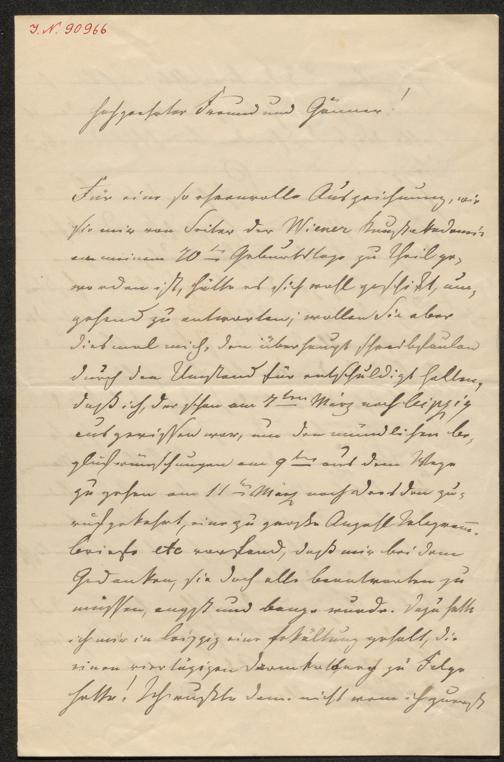 J. N. 90966
Hochgeehrter Freund und Gönner!
Für eine so ehrenvolle Auszeichnung, wie
sie mir von Seiten der Wiener Kunstakademie
an meinem 70ten Geburtstage zu Theil ge-
worden ist, hätte es sich wohl geschickt, um-
gehend zu antworten; wollen Sie aber
diesmal mich, den überhaupt schreibfaulen
durch den Umstand für entschuldigt halten,
daß ich, der schon am 7ten März nach Leipzig
ausgerissen war, um den mündlichen be-
glückwünschungen am 9ten aus dem Wege
zu gehen am 11ten März nach Dresden zu-
rückgekehrt, eine zu große Anzahl Telegramme
briefe etc vorfand, daß mir bei dem
Gedanken, sie doch alle beantworten zu
müssen, angst und bange wurde. Dazu hatte
ich mir in Leipzig eine Erkältung geholt, die
einen viertägigen Darmkatarrh zu Folge
hatte! Ich wußte dann nicht wem ich zuerst